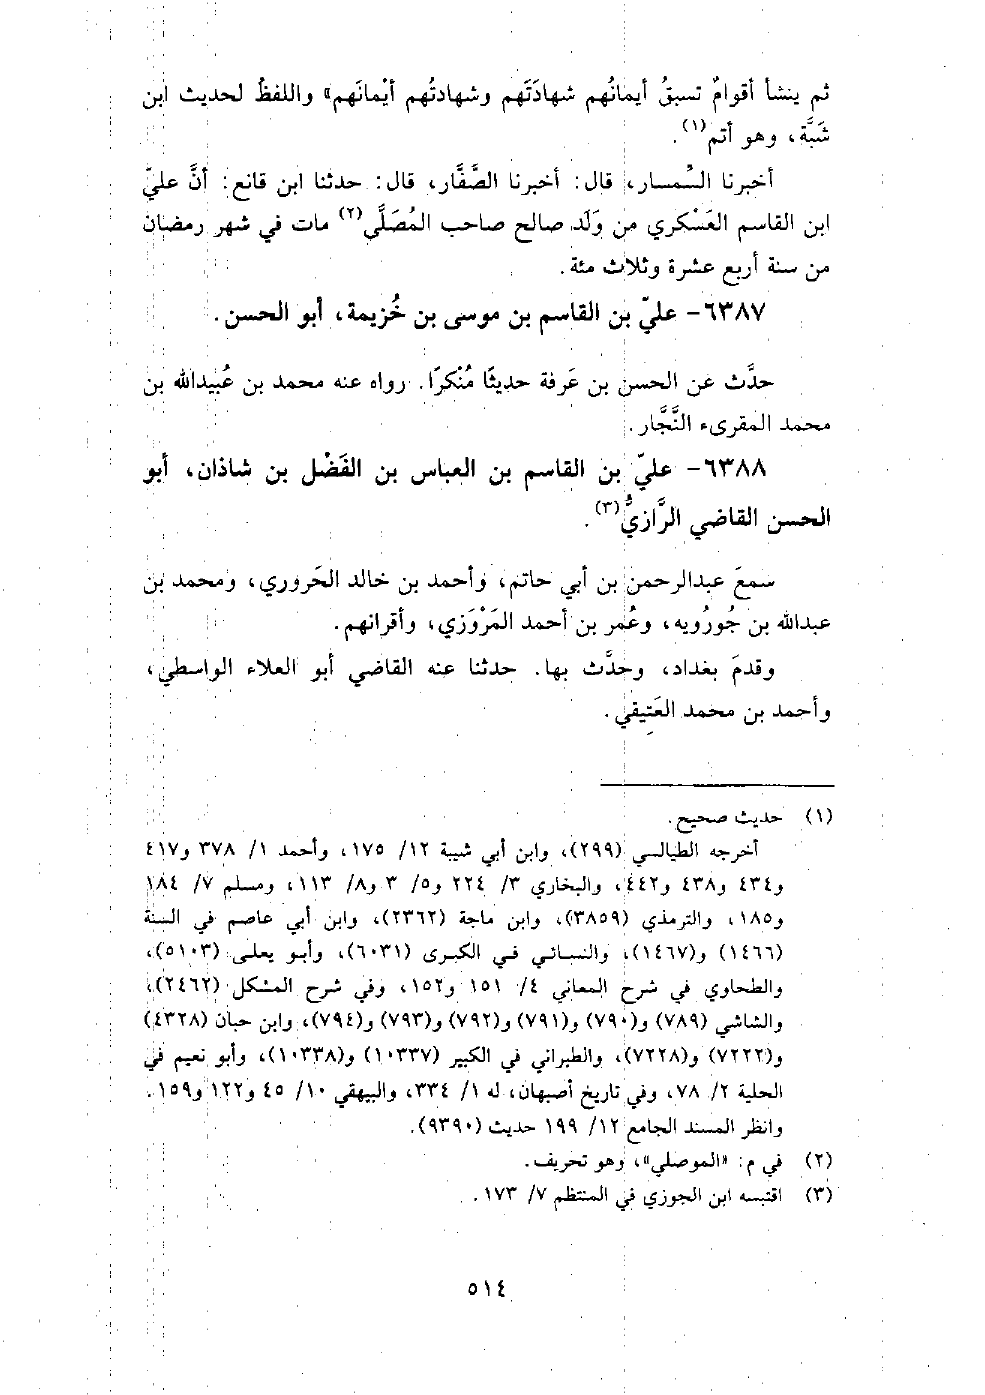 ثم ينشأ أقوامٌ تسبقُ أيمانُهم شهادَتَهم وشهادتُهم أيْمانَهم» واللفظُ لحديث ابن
شَبَّة، وهو أتم(١).
أخبرنا السِّمسار، قال: أخبرنا الصَّفَّار، قال: حدثنا ابن قانع: أنَّ عليّ
ابن القاسم العَسْكري من وَلَد صالح صاحب المُصَلَّى(٢) مات في شهر رمضان
من سنة أربع عشرة وثلاث مئة.
٦٣٨٧- عليّ بن القاسم بن موسى بن خُزيمة، أبو الحسن.
حدَّث عن الحسن بن عَرفة حديثًا مُنْكرًا. رواه عنه محمد بن عُبيدالله بن
محمد المقرىء النَّجَّار.
٦٣٨٨- عليّ بن القاسم بن العباس بن الفَضْل بن شاذان، أبو
الحسن القاضي الرَّازيُّ(٣).
سمعَ عبدالرحمن بن أبي حاتم، وأحمد بن خالد الحَروري، ومحمد بن
عبدالله بن جُورُويه، وعُمر بن أحمد المَرْوَزي، وأقرانهم.
وقدمَ بغداد، وحدَّث بها. حدثنا عنه القاضي أبو العلاء الواسطي،
وأحمد بن محمد العَتيقي.
(١) حديث صحيح.
أخرجه الطيالسي (٢٩٩)، وابن أبي شيبة ١٢/ ١٧٥، وأحمد ١/ ٣٧٨ و٤١٧
و٤٣٤ و٤٣٨ و٤٤٢، والبخاري ٣/ ٢٢٤ و٥/ ٣ و٨/ ١١٣، ومسلم ٧/ ١٨٤
و١٨٥، والترمذي (٣٨٥٩)، وابن ماجة (٢٣٦٢)، وابن أبي عاصم في السنة
(١٤٦٦) و(١٤٦٧)، والنسائي في الكبرى (٦٠٣١)، وأبو يعلى (٥١٠٣)،
والطحاوي في شرح المعاني ٤/ ١٥١ و١٥٢، وفي شرح المشكل (٢٤٦٢)،
والشاشي (٧٨٩) و(٧٩٠) و(٧٩١) و(٧٩٢) و(٧٩٣) و(٧٩٤)، وابن حبان (٤٣٢٨)
و(٧٢٢٢) و(٧٢٢٨)، والطبراني في الكبير (١٠٣٣٧) و(١٠٣٣٨)، وأبو نعيم في
الحلية ٢/ ٧٨، وفي تاريخ أصبهان، له ١/ ٣٣٤، والبيهقي ١٠/ ٤٥ و١٢٢ و١٥٩.
وانظر المسند الجامع ١٢/ ١٩٩ حديث (٩٣٩٠).
(٢) في م: «الموصلي»، وهو تحريف.
(٣) اقتبسه ابن الجوزي في المنتظم ٧/ ١٧٣.
٥١٤